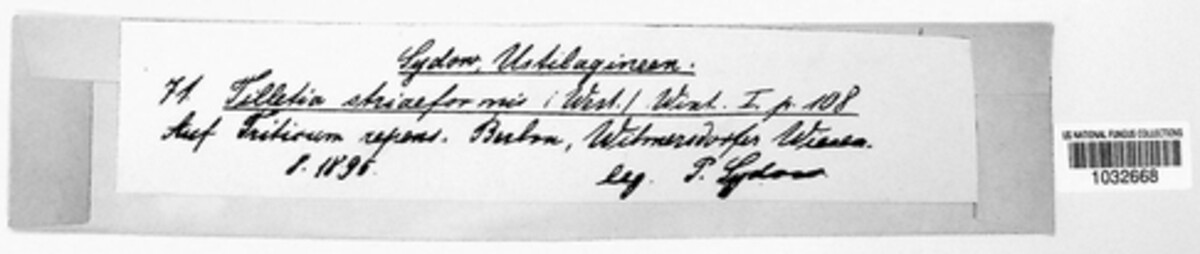 Sydow, Ustilagineen.
71 Tilletia striaeformis (West.) Wint. I. p. 108
Auf Triticum repens. Berlin, Wilmersdorfer Wiesen.
8. 1896. leg. P. Sydow
US NATIONAL FUNGUS COLLECTIONS
1032668